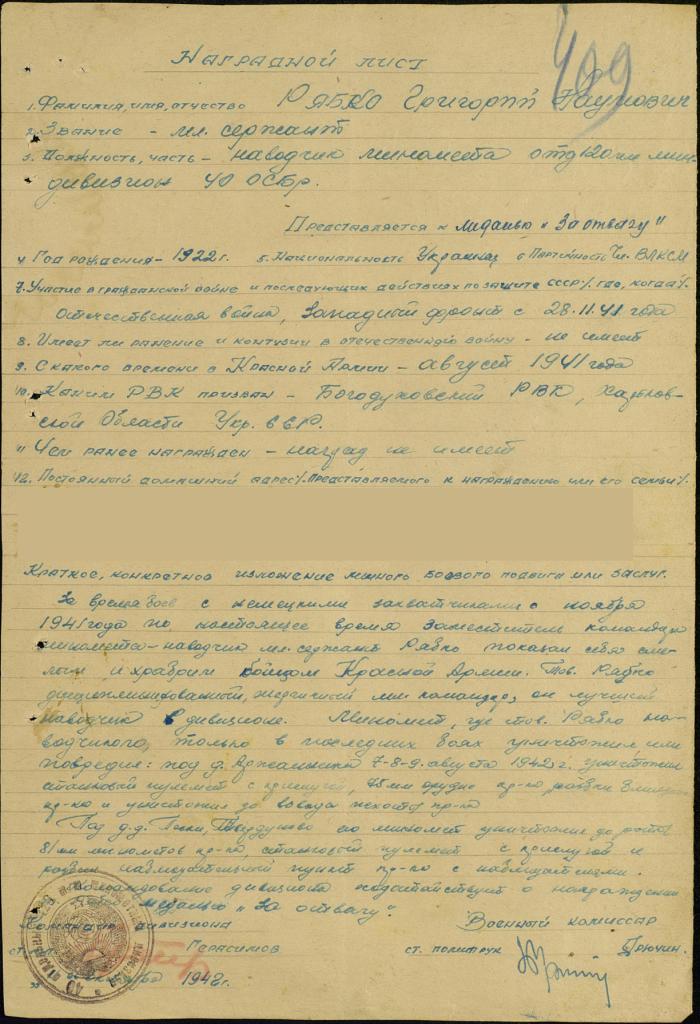 Наградной лист
409
1. Фамилия, имя, отчество Рябко Григорий Наумович
2. Звание - мл. сержант
3. Должность, часть - наводчик миномета отд 120 мм мин.
дивизион 40 ОСБр.
Представляется к медалью "За отвагу"
4 Год рождения - 1922 г. 5. Национальность Украинец 6 Партийность Чл. ВЛКСМ
7. Участие в гражданской войне и последующих действиях по защите СССР /. где, когда /.
Отечественная война, Западный фронт с 28.11.41 года
8. Имеет ли ранение и контузии в отечественную войну - не имеет
9. С какого времени в Красной Армии - август 1941 года
10. Каким РВК призван - Богодуховский РВК, Харьков-
ской Области Укр. ССР.
11 Чем ранее награжден - наград не имеет
12. Постоянный домашний адрес /. представляемого к награждению или его семьи /.
Краткое, конкретное изложение личного боевого подвига или заслуг.
За время боев с немецкими захватчиками с ноября
1941 года по настоящее время заместитель командира
миномета - наводчик мл. сержант Рябко показал себя сме-
лым и храбрым бойцом Красной Армии. Тов. Рябко
дисциплинированный, мл командир, он лучший
наводчик в дивизионе. Миномет, где тов. Рябко на-
водчиком, только в последних боях уничтожил или
повредил: под д. 7-8-9. августа 1942 г. уничтожил
станковый пулемет с прислугой, 45 мм орудие пр-ка, разбил
пр-ка и уничтожил до взвода пехоты пр-ка
Под д.д. его миномет уничтожил до роты
81 мм минометов пр-ка, станковый пулемет с прислугой и
разбил наблюдательный пункт пр-ка с наблюдателями.
Командование дивизиона ходатайствует о награждении
медалью "За отвагу".
Командир дивизиона Военный комиссар
Герасимов ст. политрук Грючин.
1942 г.